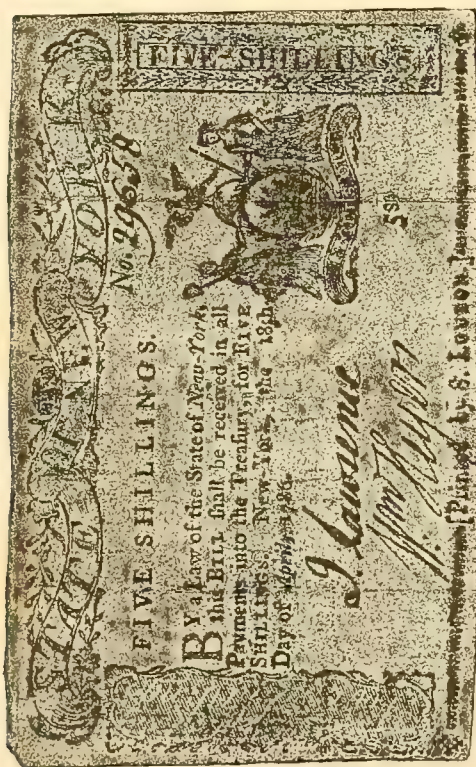 STATE OF NEW YORK
No. 29638
FIVE SHILLINGS.
BY a Law of the State of New-York,
this BILL shall be received in all
Payments into the Treasury, for FIVE
SHILLINGS. New-York, the 18th
Day of April, 1786.
5sh
J. Lawrence
Wm Heyer
FIVE-SHILLINGS
Printed by S. LOUDON